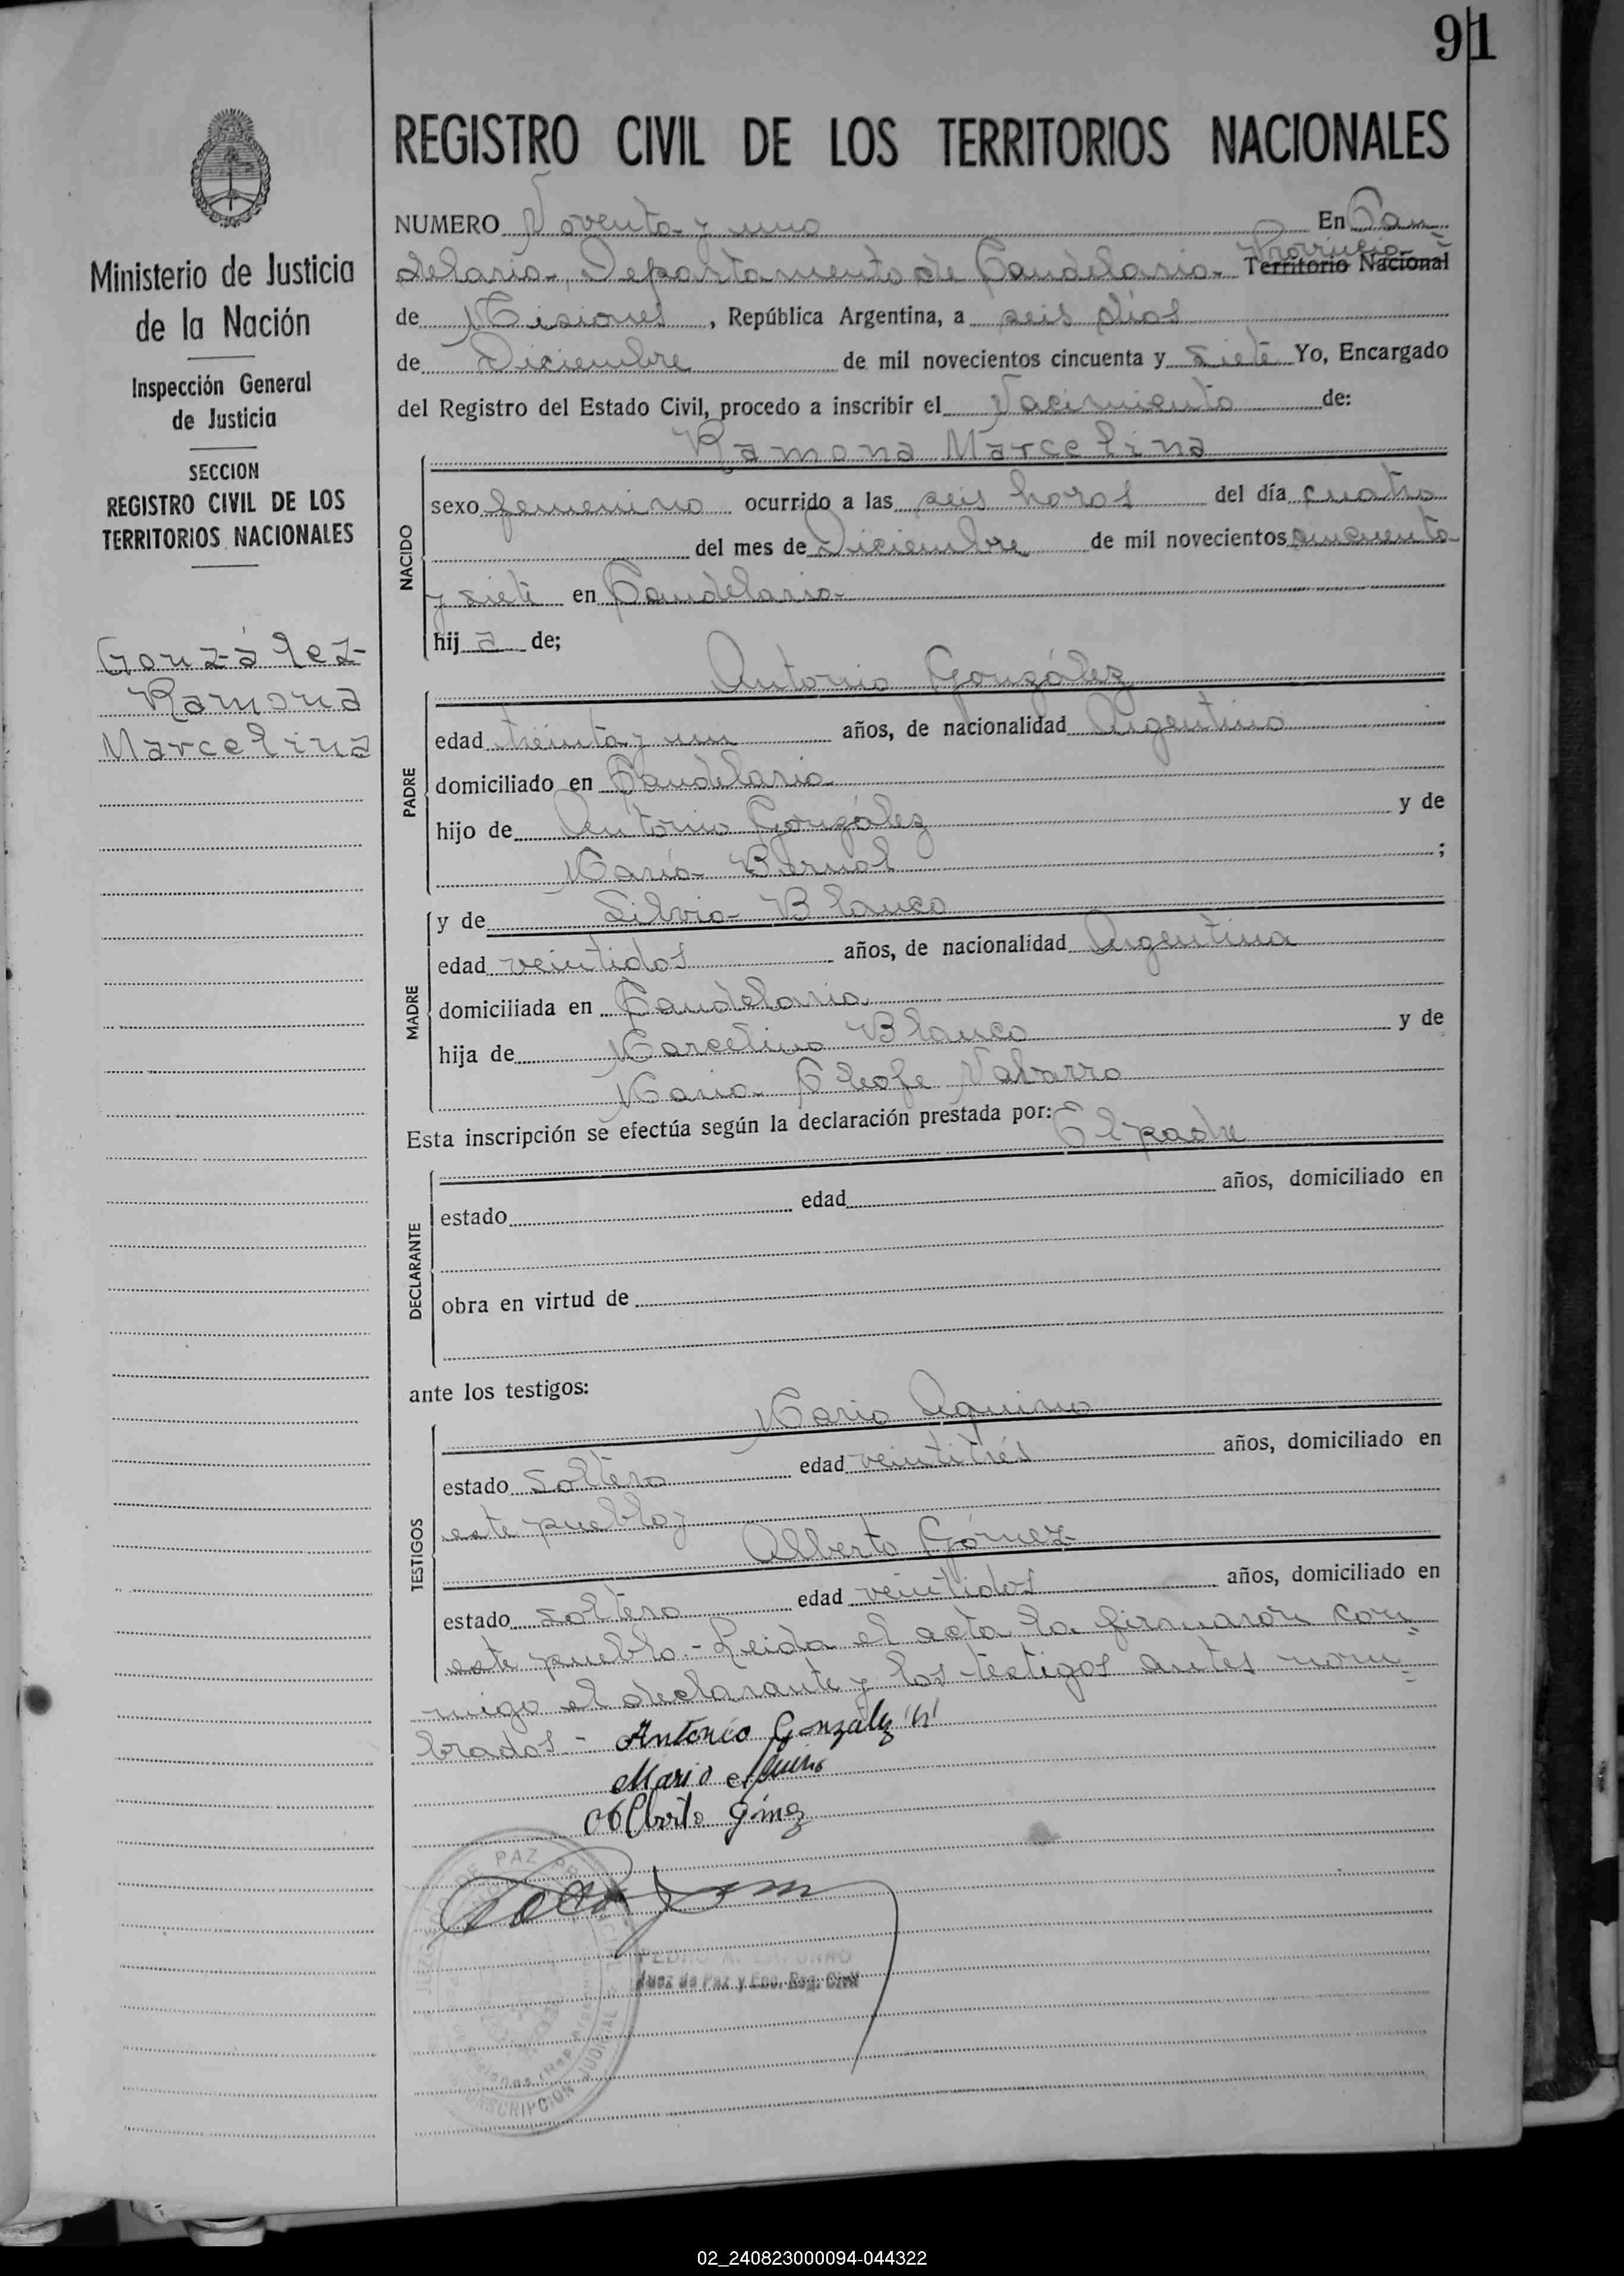 91
REGISTRO CIVIL DE LOS TERRITORIOS NACIONALES
Ministerio de Justicia
de la Nación
Inspección General
de Justicia
SECCION
REGISTRO CIVIL DE LOS
TERRITORIOS NACIONALES
González
Ramona
Marcelina
NUMERO Noventa y uno En Can
delaria, Departamento de Candelaria Provincia Territorio Nacional
de Misiones, República Argentina, a seis días
de Diciembre de mil novecientos cincuenta y siete Yo, Encargado
del Registro del Estado Civil, procedo a inscribir el Nacimiento de:
Ramona Marcelina
NACIDO
sexo femenino ocurrido a las seis horas del día cuatro
del mes de Diciembre de mil novecientos cincuenta
y siete en Candelaria
hij a de;
Antonio González
PADRE
edad treinta y un años, de nacionalidad Argentino
domiciliado en Candelaria
hijo de Antonio González y de
María Bernal ;
MADRE
y de Silvia Blanco
edad veintidos años, de nacionalidad Argentina
domiciliada en Candelaria
hija de Marcelino Blanco y de
Maria Cleofe Nabarro
Esta inscripción se efectúa según la declaración prestada por: El padre
DECLARANTE
estado edad años, domiciliado en
obra en virtud de
ante los testigos:
Mario Aquino
TESTIGOS
estado soltero edad veintitrés años, domiciliado en
este pueblo y
Alberto Gómez
estado soltero edad veintidos años, domiciliado en
este pueblo.- Leida el acta la firmaron con
migo el declarante y los testigos antes nom
brados.- Antonio Gonzalez (h)
Mario Aquino
Alberto Gómez
DE PAZ
PEDRO A.
Juez de Paz y Enc. Reg. Civil
JUDICIAL
02_240823000094-044322